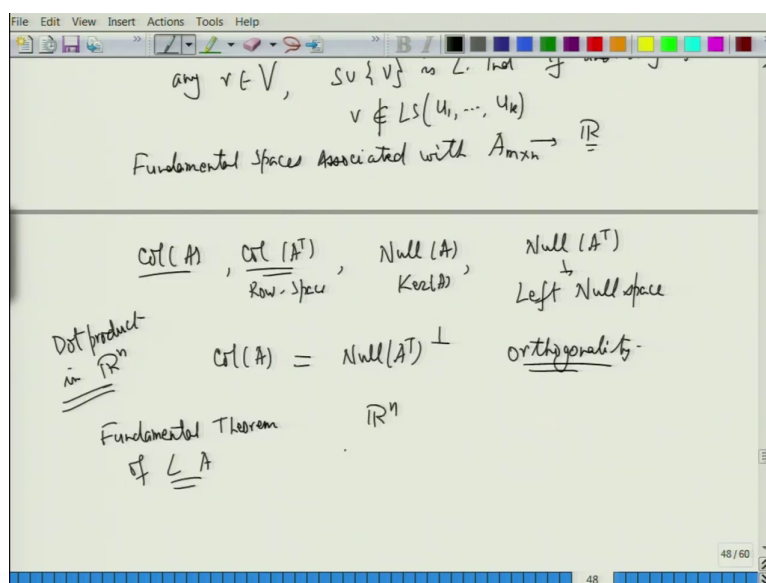 File Edit View Insert Actions Tools Help
any v ∈ V, S ∪ {v} is L. Ind if
v ∉ LS(u₁, ..., uₖ)
Fundamental Spaces Associated with Aₘₓₙ → ℝ
Col(A), Col(Aᵀ), Null(A), Null(Aᵀ)
Row-Space Ker(A) ↓
Left Null space
Dot product
in ℝⁿ
Col(A) = Null(Aᵀ)⊥ orthogonality.
Fundamental Theorem ℝⁿ
of L A
48/60
48